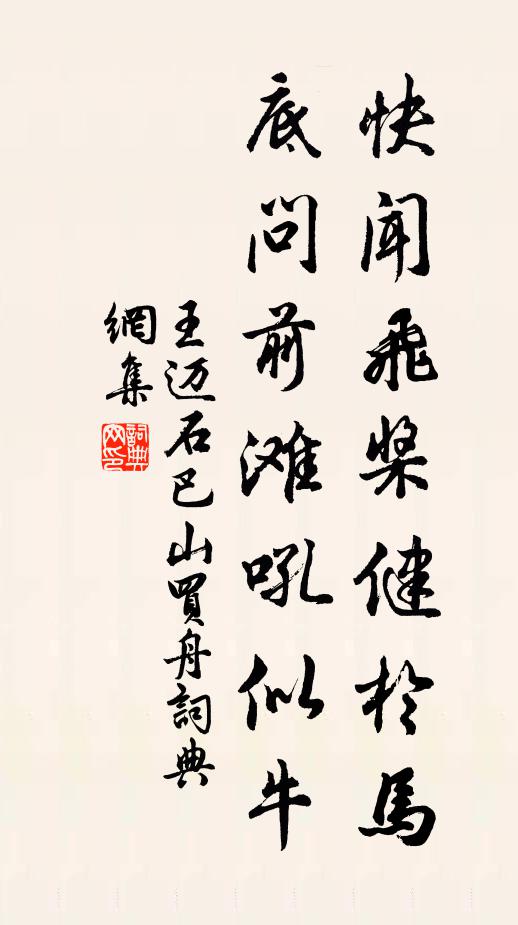 快闻飛槳健於馬
底问前滩吼似牛
王迈石巴山買舟詞典
網集
詞典網印